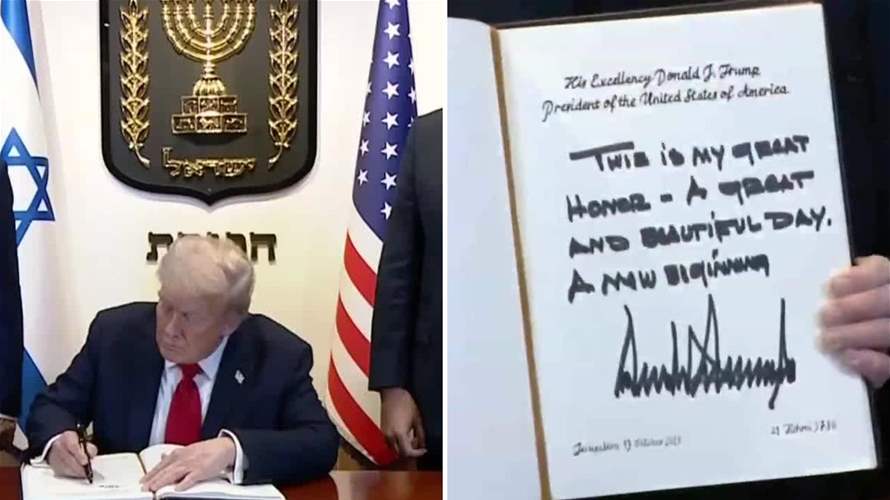 ישראל
הכנסת
His Excellency Donald J. Trump
President of the United States of America
THIS IS MY GREAT
HONOR - A GREAT
AND BEAUTIFUL DAY.
A NEW BEGINNING
Jerusalem, 13 October 2025
21 Tishrei 5786